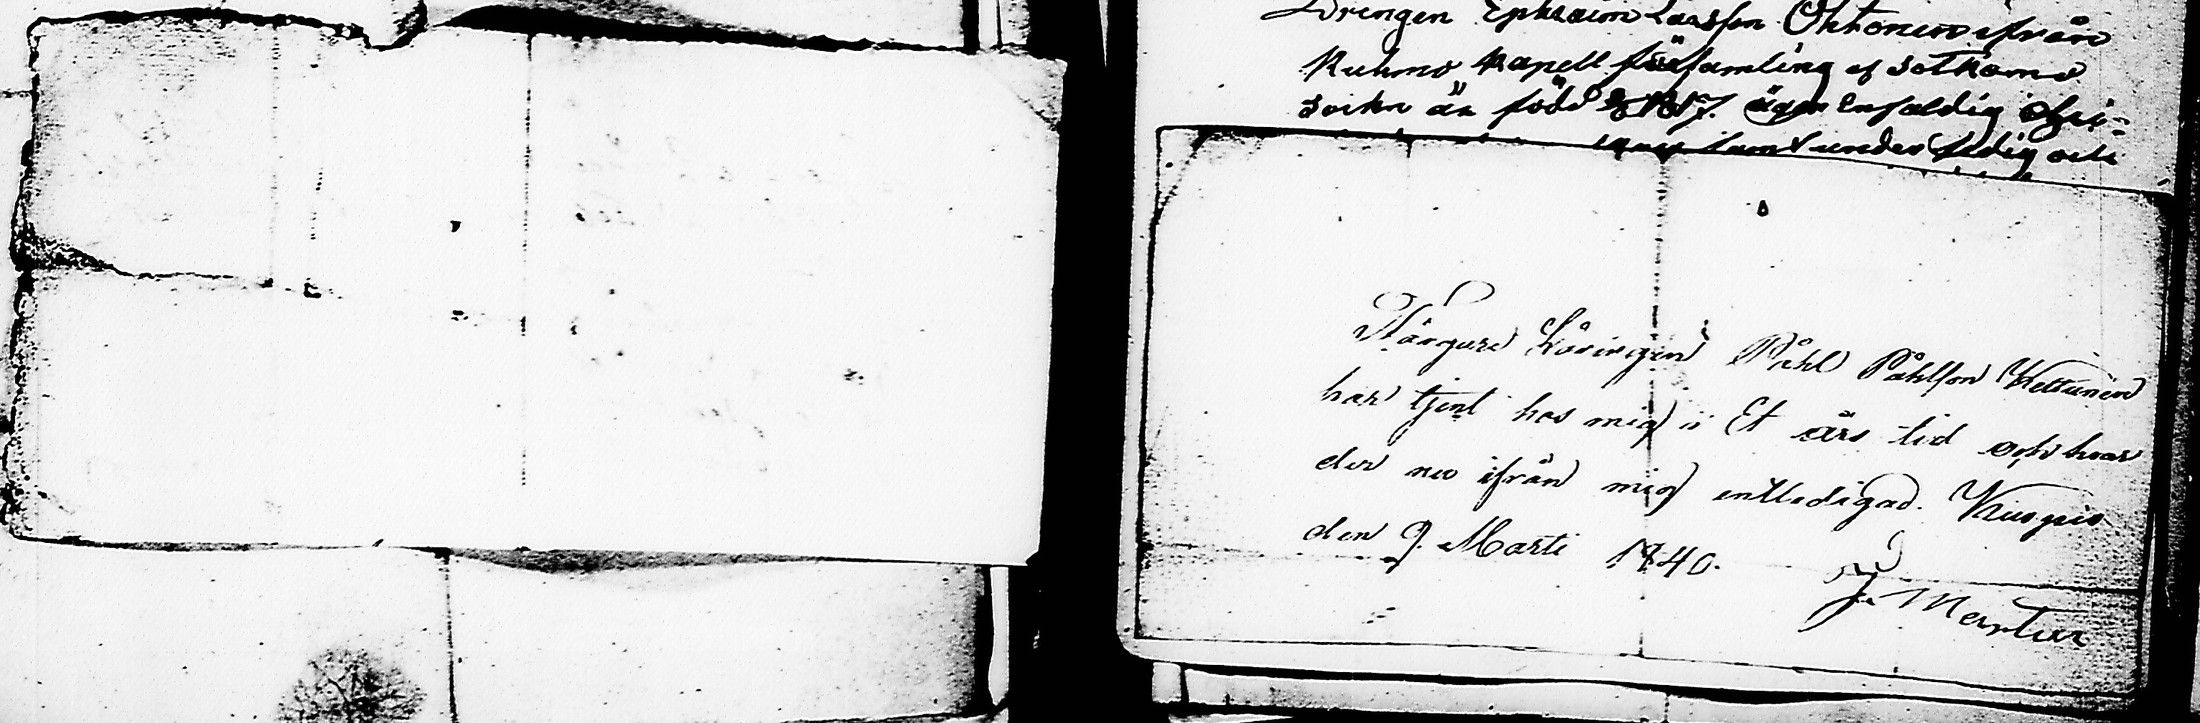 Drengen Ephraim Larsson Okkonen ifrån
Kuhmo Kapell församling af Sotkamo
Sockn är född 1817. äger Enfaldig Chri-
samt under ledig och
Gårdings Påhl Påhlson Kettunen
har tjent hos mig i Et års tid och har
der nu ifrån mig entledigad. Kuopio
den 9. Marti 1840.